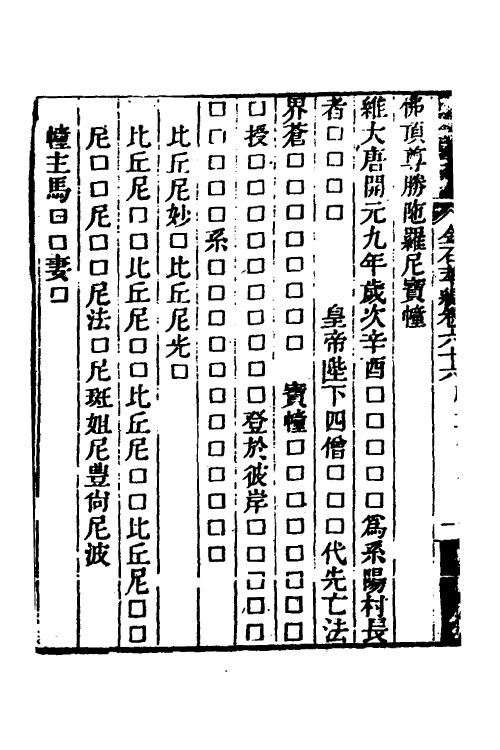 金石萃編卷六十六
佛頂尊勝陁羅尼寶幢
維大唐開元九年歲次辛酉□□□□□爲系陽村長
者□□□□　　皇帝陛下四僧□□□代先亡法
界蒼□□□□□□　寶幢□□□□□□□□
□授□□□□□□□□□登於彼岸□□□□□
□□□□□系□□□□□□□□□□□□
比丘尼妙□比丘尼光□
比丘尼□□比丘尼□□比丘尼□□比丘尼□□
尼□□尼□□尼法□尼斑姐尼豐尙尼波
幢主馬□□妻□